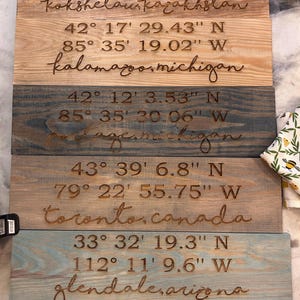 kokshetau, kazakhstan
42° 17' 29.43" N
85° 35' 19.02" W
kalamazoo, michigan
42° 12' 3.53" N
85° 35' 30.06" W
portage, michigan
43° 39' 6.8" N
79° 22' 55.75" W
toronto, canada
33° 32' 19.3" N
112° 11' 9.6" W
glendale, arizona